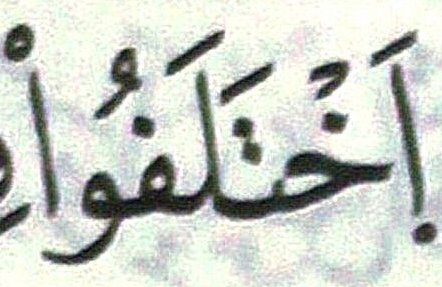 اَ۪خْتَلَفُواْ